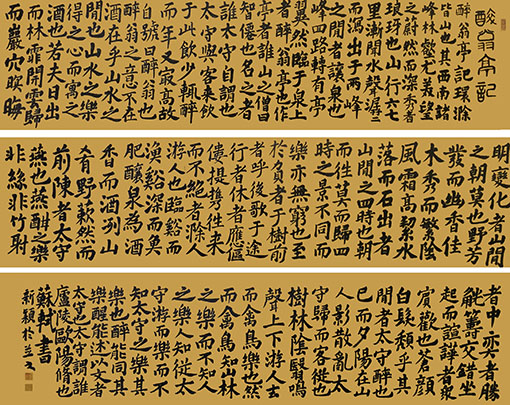 醉翁亭記
醉翁亭記環滁
皆山也其西南諸
峰林壑尤美望
之蔚然而深秀者
琅玡也山行六七
里漸聞水聲潺〻
而瀉出于兩峰
之間者讓泉也
峰回路轉有亭
翼然臨于泉上
者醉翁亭也作
亭者誰山之僧曰
智僊也名之者
誰太守自謂也
太守與客來飲
于此飲少輒醉
而年又寂高故
自號曰醉翁也
醉翁之意不在
酒在乎山水之
間也山水之樂
得之心而寓之
酒也若夫日出
而林霏開雲歸
而巖穴暝晦
明變化者山間
之朝莫也野芳
發而幽香佳
木秀而繁陰
風霜高潔水
落而石出者
山間之四時也朝
而往莫而歸四
時之景不同而
樂亦無窮也至
於負者于樹前
者乎後歌于途
行者休者應傴
僂提攜往來
而不絕者滁人
游人也臨谿而
漁谿深而魚
肥釀泉為酒
香而酒洌山
肴野蔌然而
前陳者太守
燕也燕酣之樂
非絲非竹射
者中奕者勝
觥籌交錯坐
起而諠譁者眾
賓歡也蒼顏
白髮頹乎其
間者太守醉也
已而夕陽在山
人影散亂太
守歸而客從也
樹林陰翳鳴
聲上下游人去
而禽鳥樂也然
而禽鳥知山林
之樂而不知人
之樂人知從太
守游而樂而不
知太守之樂其
樂也醉能同其
樂醒能述以文者
太守也太守謂誰
廬陵歐陽脩也
蘇軾書
新穎於